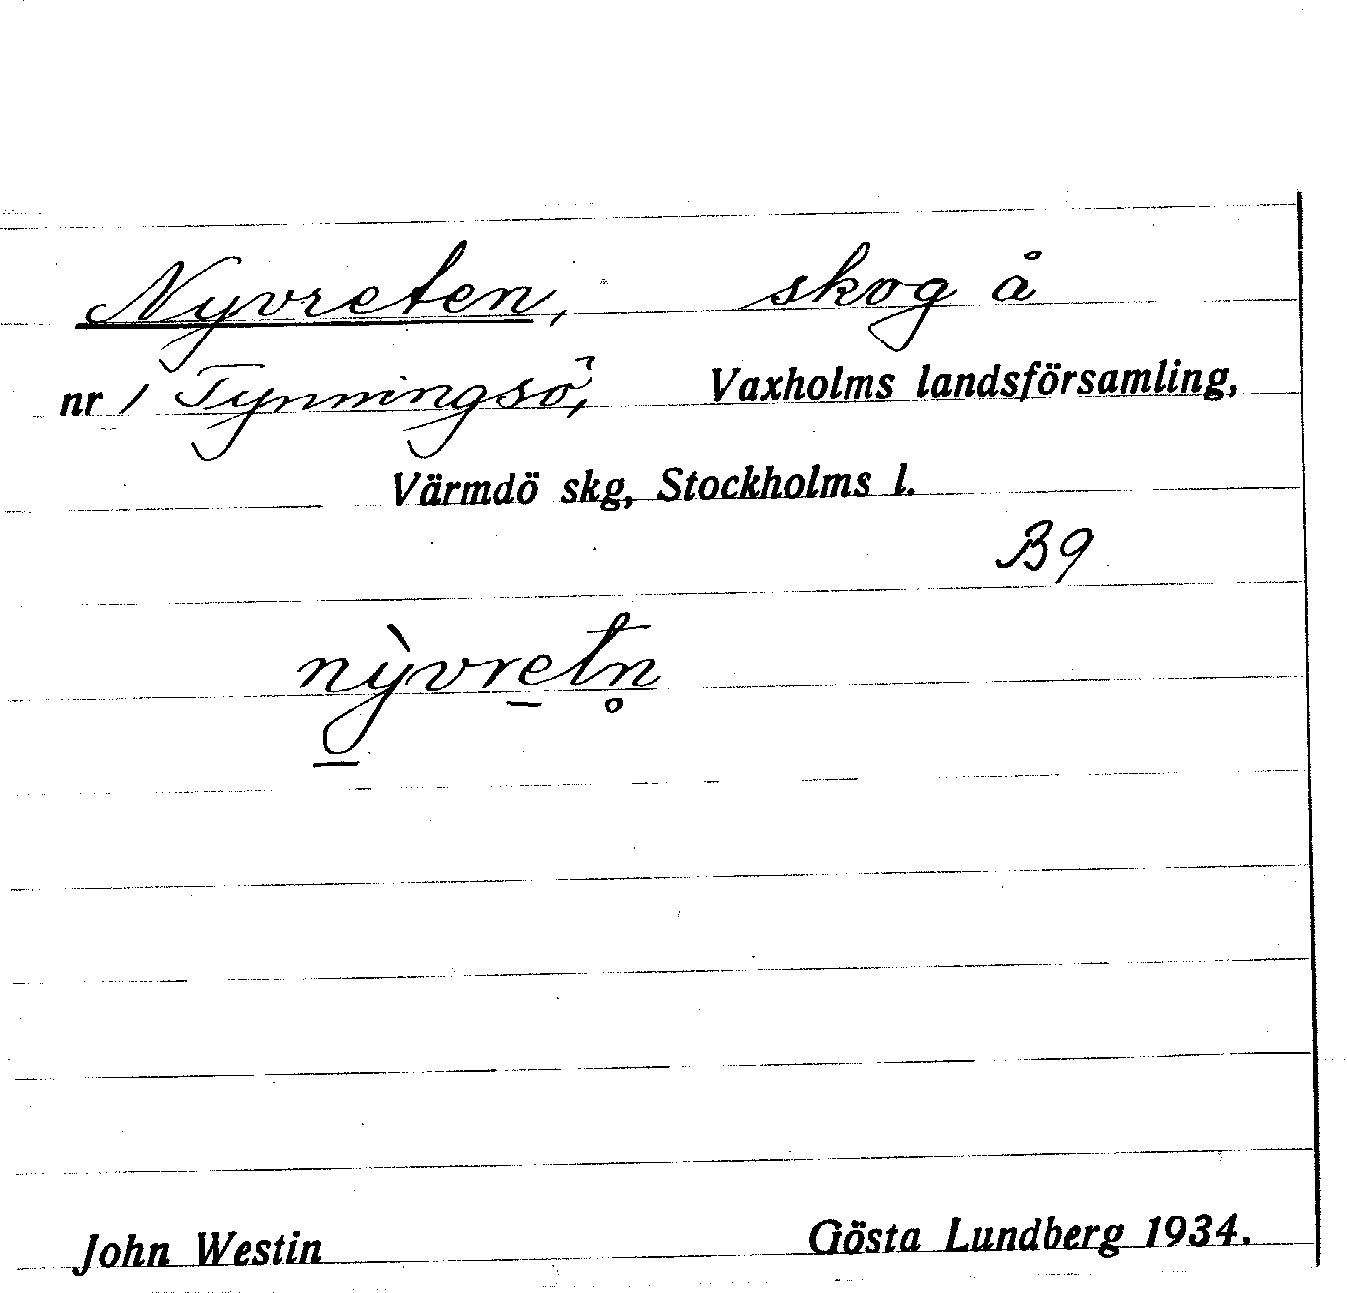 Nyvreten, skog å
nr 1 Tynningsö, Vaxholms landsförsamling,
Värmdö skg, Stockholms l.
B9
nỳvre̠tn̥
John Westin Gösta Lundberg 1934.